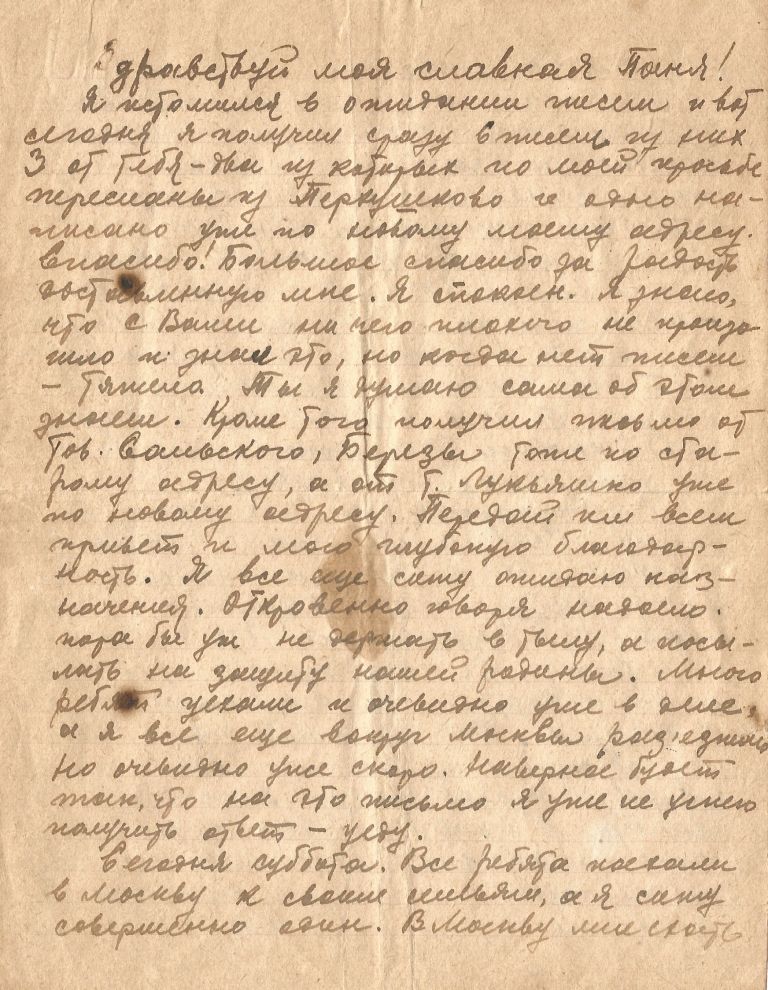 Здравствуй моя славная Таня!
Я истомился в ожидании писем и вот
сегодня я получил сразу 6 писем из них
3 от тебя – два из которых по моей просьбе
пересланы из Перхушково и одно на-
писано уже по новому моему адресу.
Спасибо! Большое спасибо за радость
доставленную мне. Я спокоен. Я знаю,
что с Вами ни чего плохого не произо-
шло и знал это, но когда нет писем
– тяжело. Ты я думаю сама об этом
знаеш. Кроме того получил письмо от
тов. Сальского, Березы тоже по ста-
рому адресу, а от т. Лукьяшко уже
по новому адресу. Передай им всем
привет и мою глубокую благодар-
ность. Я все еще сижу ожидаю наз-
начения. Откровенно говоря надоело.
пора бы уж не держать в тылу, а посы-
лать на защиту нашей родины. Много
ребят уехали и очевидно уже в деле,
а я все еще вокруг Москвы
но очевидно уже скоро. Наверное будет
так, что на это письмо я уже не успею
получить ответ – уеду.
Сегодня суббота. Все ребята поехали
в Москву к своим семьям, а я сижу
совершенно один. В Москву мне ехать